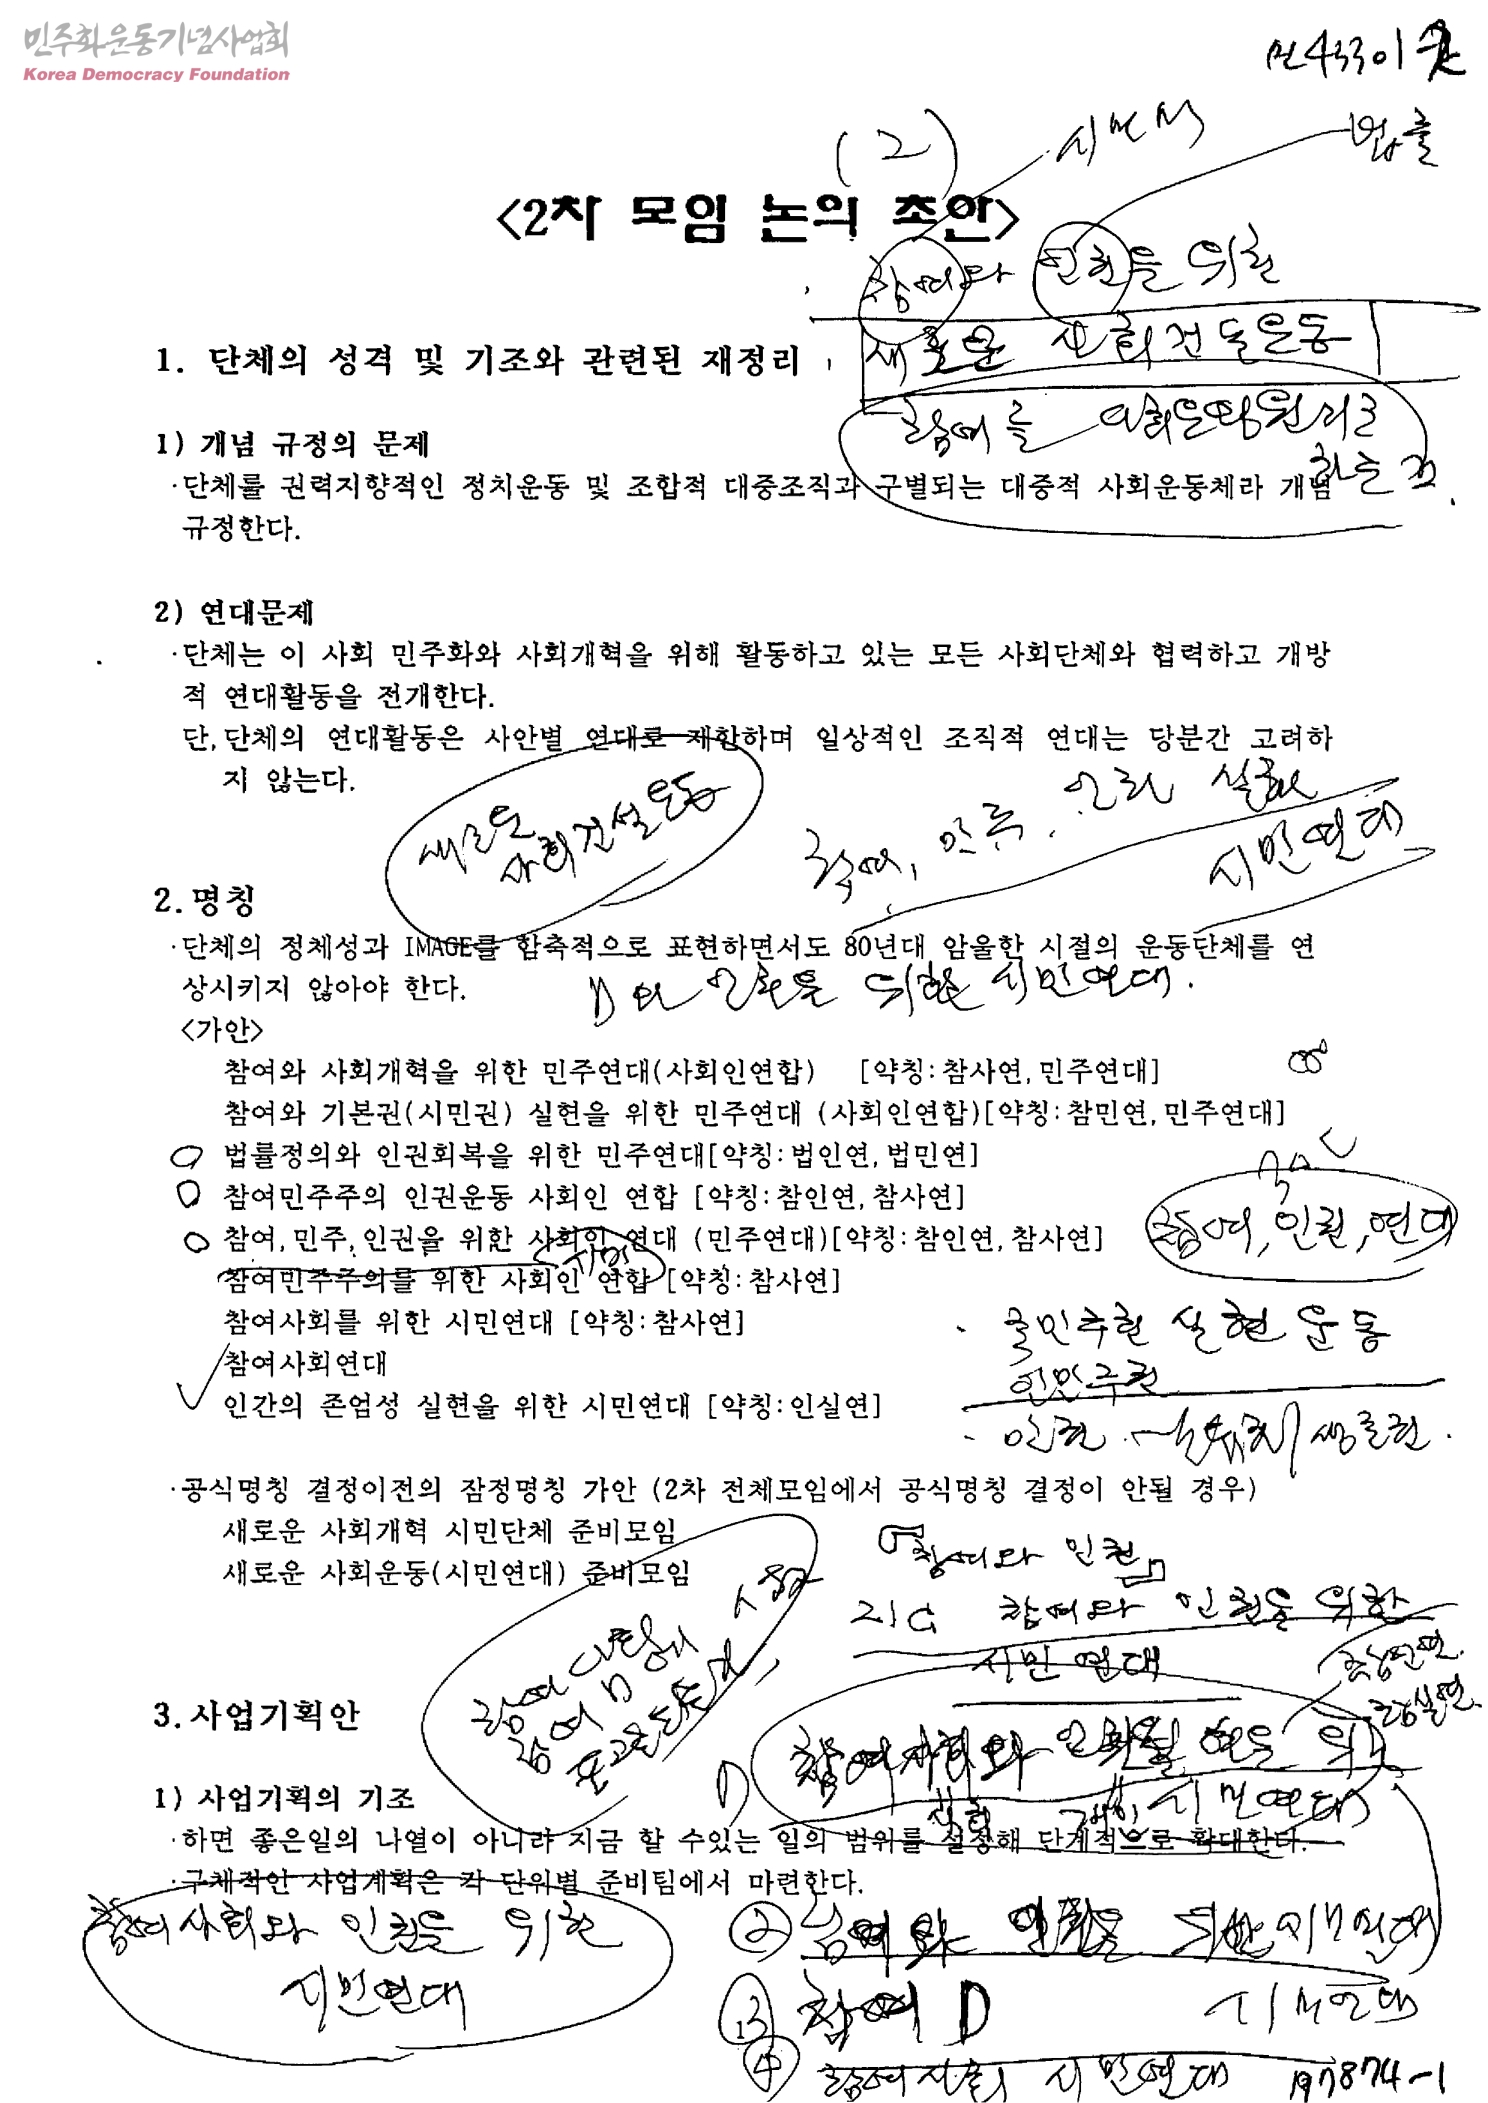 민주화운동기념사업회
Korea Democracy Foundation
(2)
법률
<2차 모임 논의 초안>
참여와 인권을 위한
새로운 사회건설운동
1. 단체의 성격 및 기조와 관련된 재정리
참여를
1) 개념 규정의 문제
하는 것.
·단체를 권력지향적인 정치운동 및 조합적 대중조직과 구별되는 대중적 사회운동체라 개념
규정한다.
2) 연대문제
·단체는 이 사회 민주화와 사회개혁을 위해 활동하고 있는 모든 사회단체와 협력하고 개방
적 연대활동을 전개한다.
단, 단체의 연대활동은 사안별 연대로 제한하며 일상적인 조직적 연대는 당분간 고려하
지 않는다.
새로운
사회건설운동
참여, 민주, 인권 실현
시민연대
2. 명칭
·단체의 정체성과 IMAGE를 함축적으로 표현하면서도 80년대 암울한 시절의 운동단체를 연
상시키지 않아야 한다.
D와 인권을 위한 시민연대.
<가안>
참여와 사회개혁을 위한 민주연대(사회인연합) [약칭: 참사연, 민주연대]
참여와 기본권(시민권) 실현을 위한 민주연대 (사회인연합)[약칭: 참민연, 민주연대]
법률정의와 인권회복을 위한 민주연대[약칭: 법인연, 법민연]
참여민주주의 인권운동 사회인 연합 [약칭: 참인연, 참사연]
참여, 민주, 인권을 위한 사회인 연대 (민주연대)[약칭: 참인연, 참사연]
시민
참여, 인권, 연대
참여민주주의를 위한 사회인 연합 [약칭: 참사연]
참여사회를 위한 시민연대 [약칭: 참사연]
국민주권 실현 운동
참여사회연대
인민주권
인간의 존엄성 실현을 위한 시민연대 [약칭: 인실연]
인권 생존권.
·공식명칭 결정이전의 잠정명칭 가안 (2차 전체모임에서 공식명칭 결정이 안될 경우)
새로운 사회개혁 시민단체 준비모임
새로운 사회운동(시민연대) 준비모임
『참여와 인권』
참여와 인권을 위한
시민연대
3. 사업기획안
시민연대
1) 사업기획의 기조
·하면 좋은일의 나열이 아니라 지금 할 수있는 일의 범위를 설정해 단계적으로 확대한다.
·구체적인 사업계획은 각 단위별 준비팀에서 마련한다.
참여사회와 인권을 위한
시민연대
② 참여와 인권을 위한 시민연대
③ 참여 D 시민연대
④ 참여사회 시민연대
197874-1